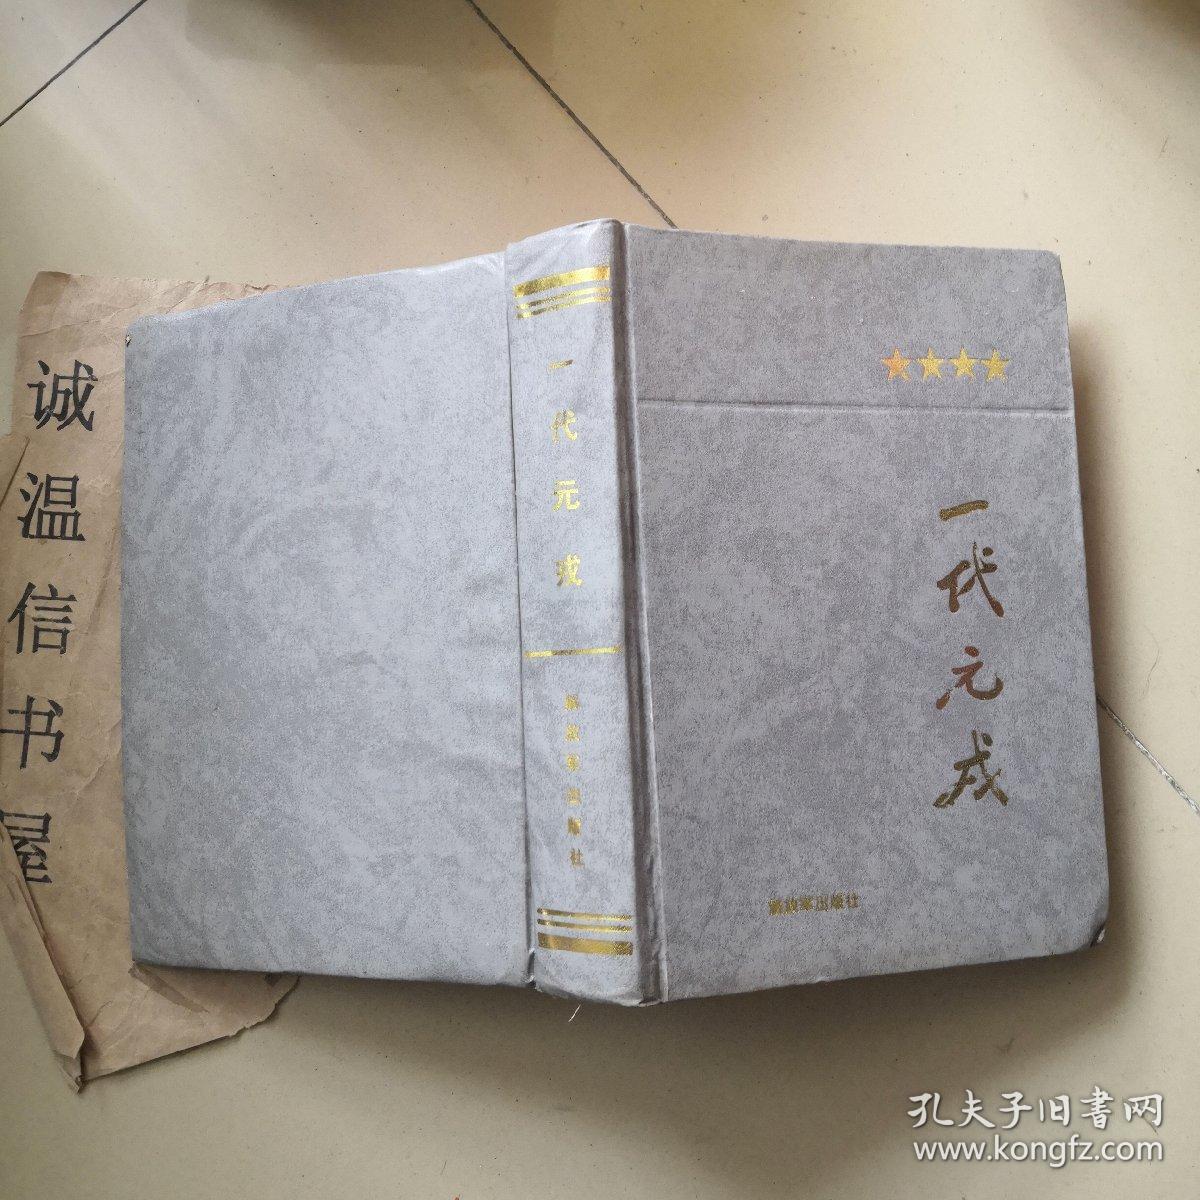 诚温信书屋
一代元戎
解放军出版社
一代元戎
解放军出版社
孔夫子旧书网
www.kongfz.com